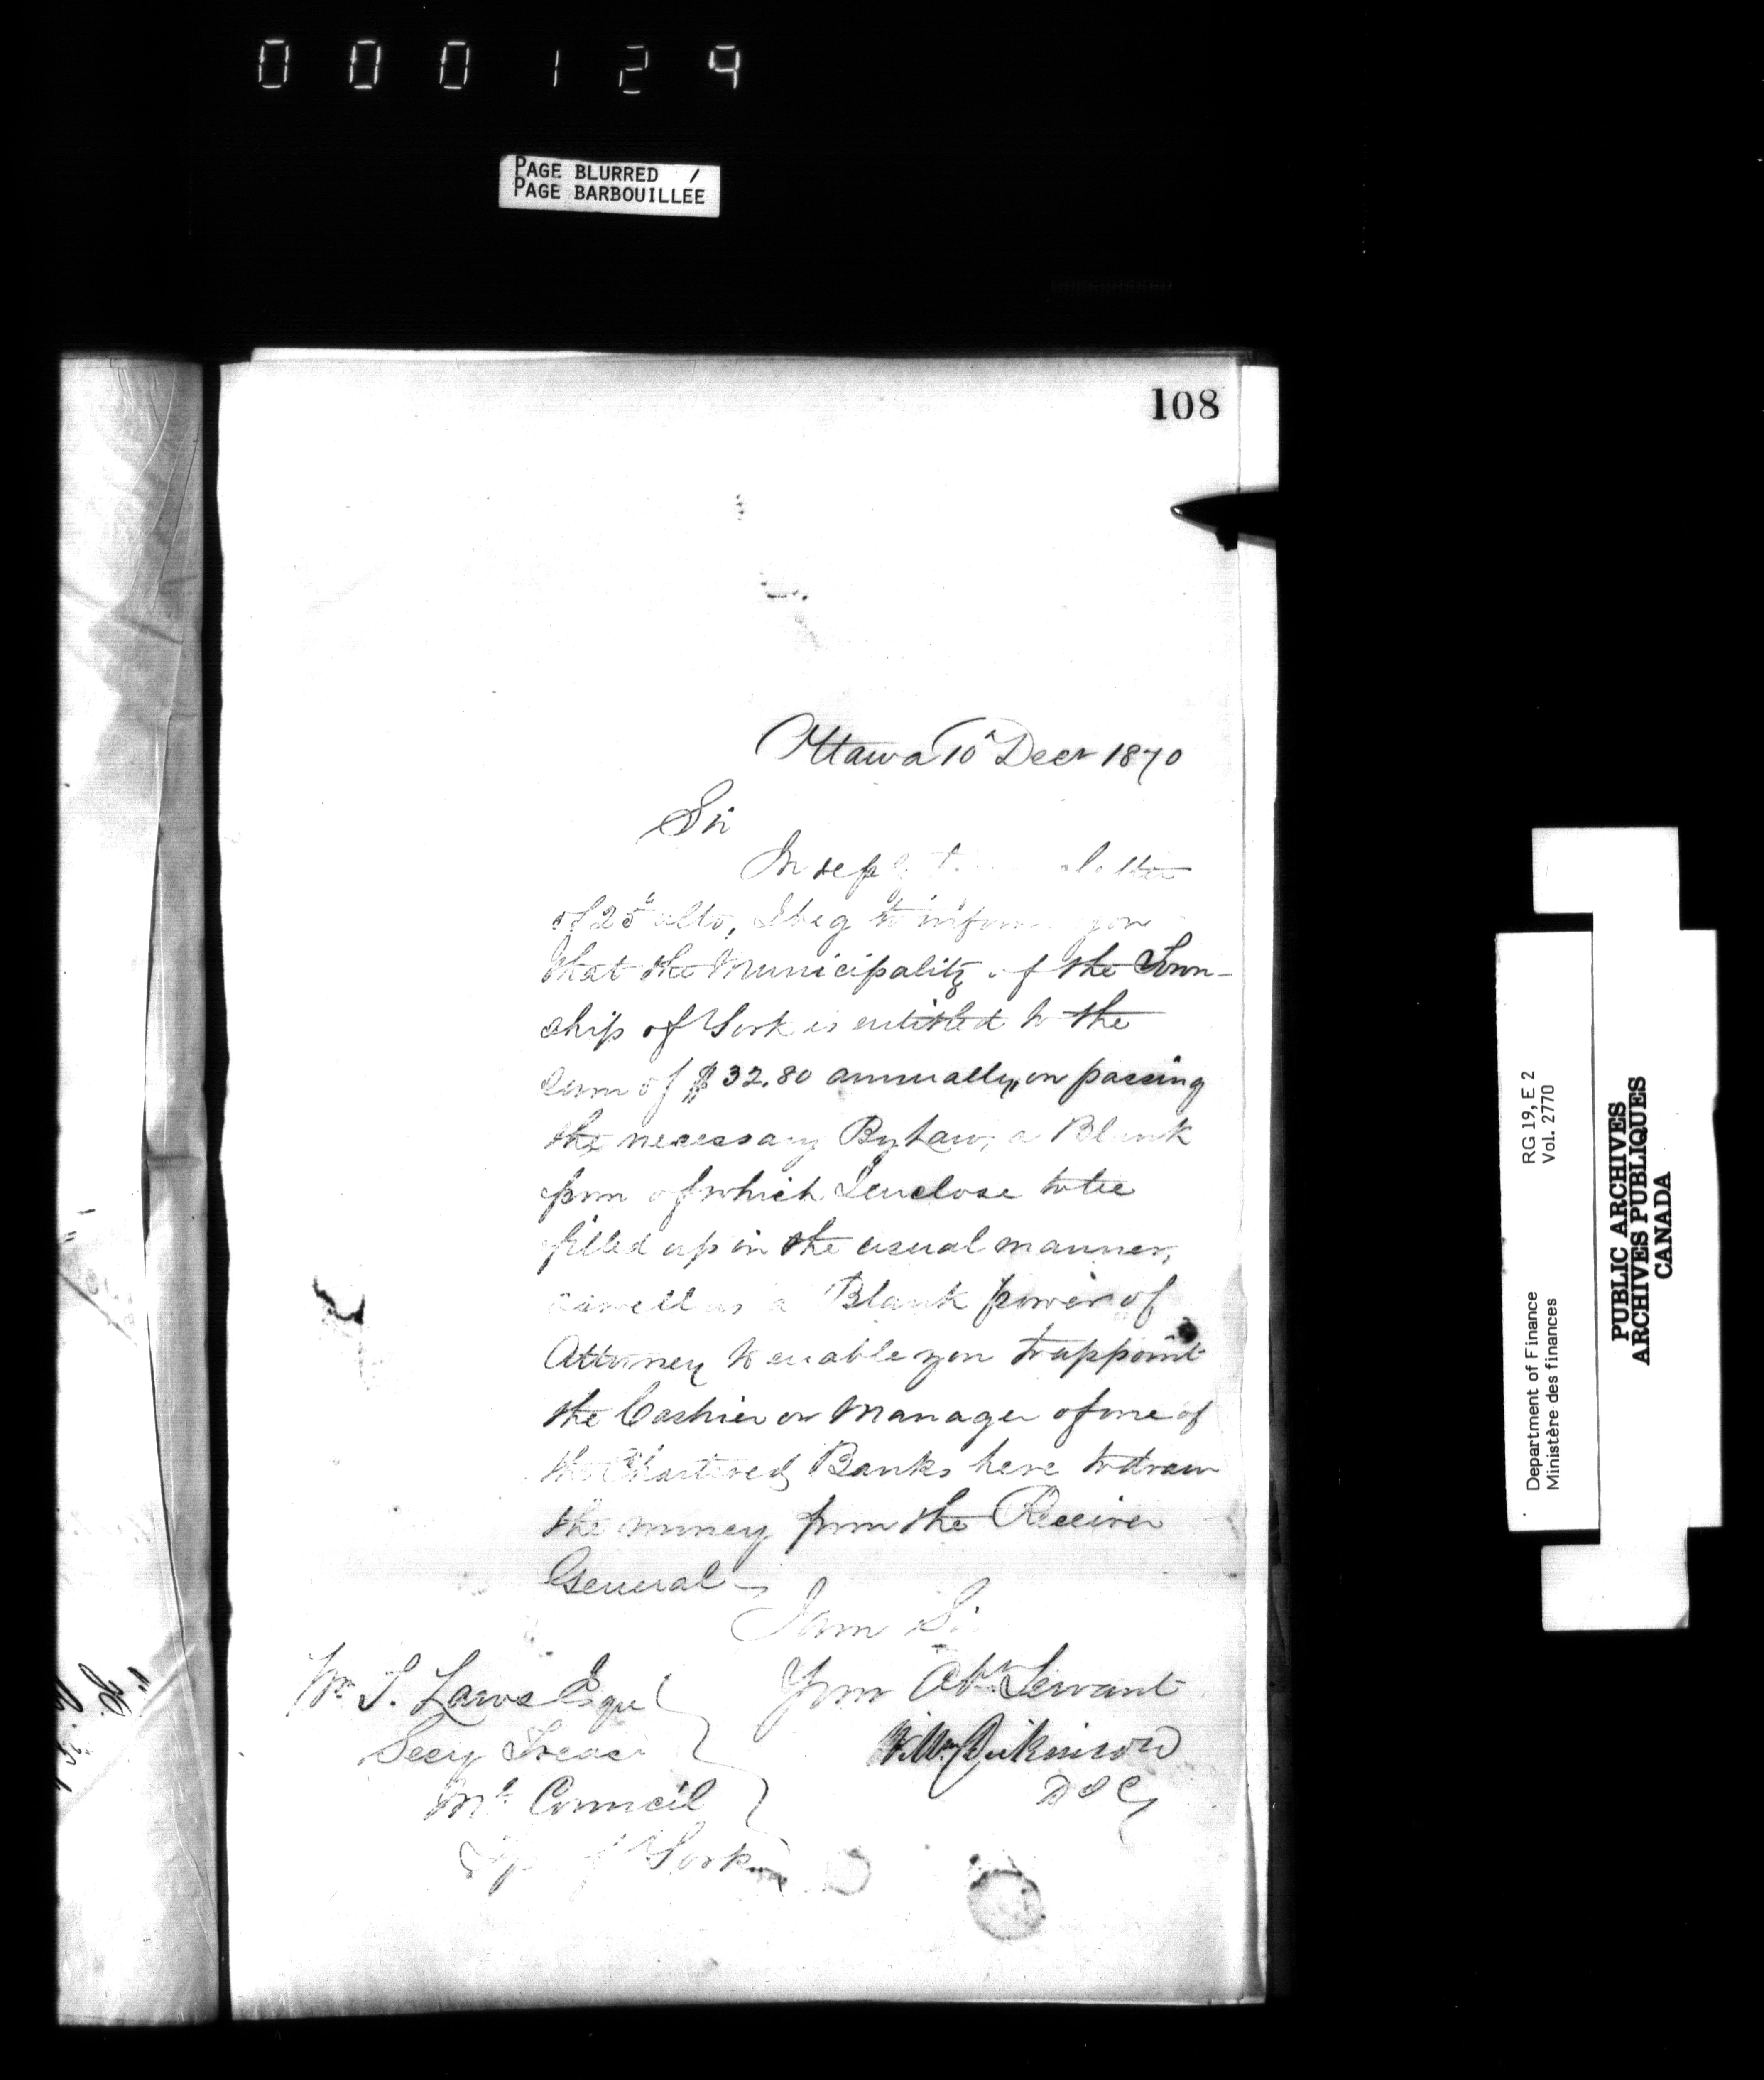 000129
PAGE BLURRED /
PAGE BARBOUILLEE
108
Ottawa 10 Decr 1870
Sir
In reply letter
of 25th ulto, I beg to inform you
that the Municipality of the Town-
ship of York is entitled to the
sum of $32.80 annually, on passing
the necessary By Law, a Blank
form of which I enclose to be
filled up in the usual manner,
as well as a Blank power of
Attorney to enable you to appoint
the Cashier or Manager of one of
the Chartered Banks here to draw
the money from the Receiver
General
I am Sir
Your Obt Servant
Willm Dickinson
D I G
Wm Esqre
Secy Treasr
Council
Tp of York
RG 19, E 2
Vol. 2770
Department of Finance
Ministère des finances
PUBLIC ARCHIVES
ARCHIVES PUBLIQUES
CANADA